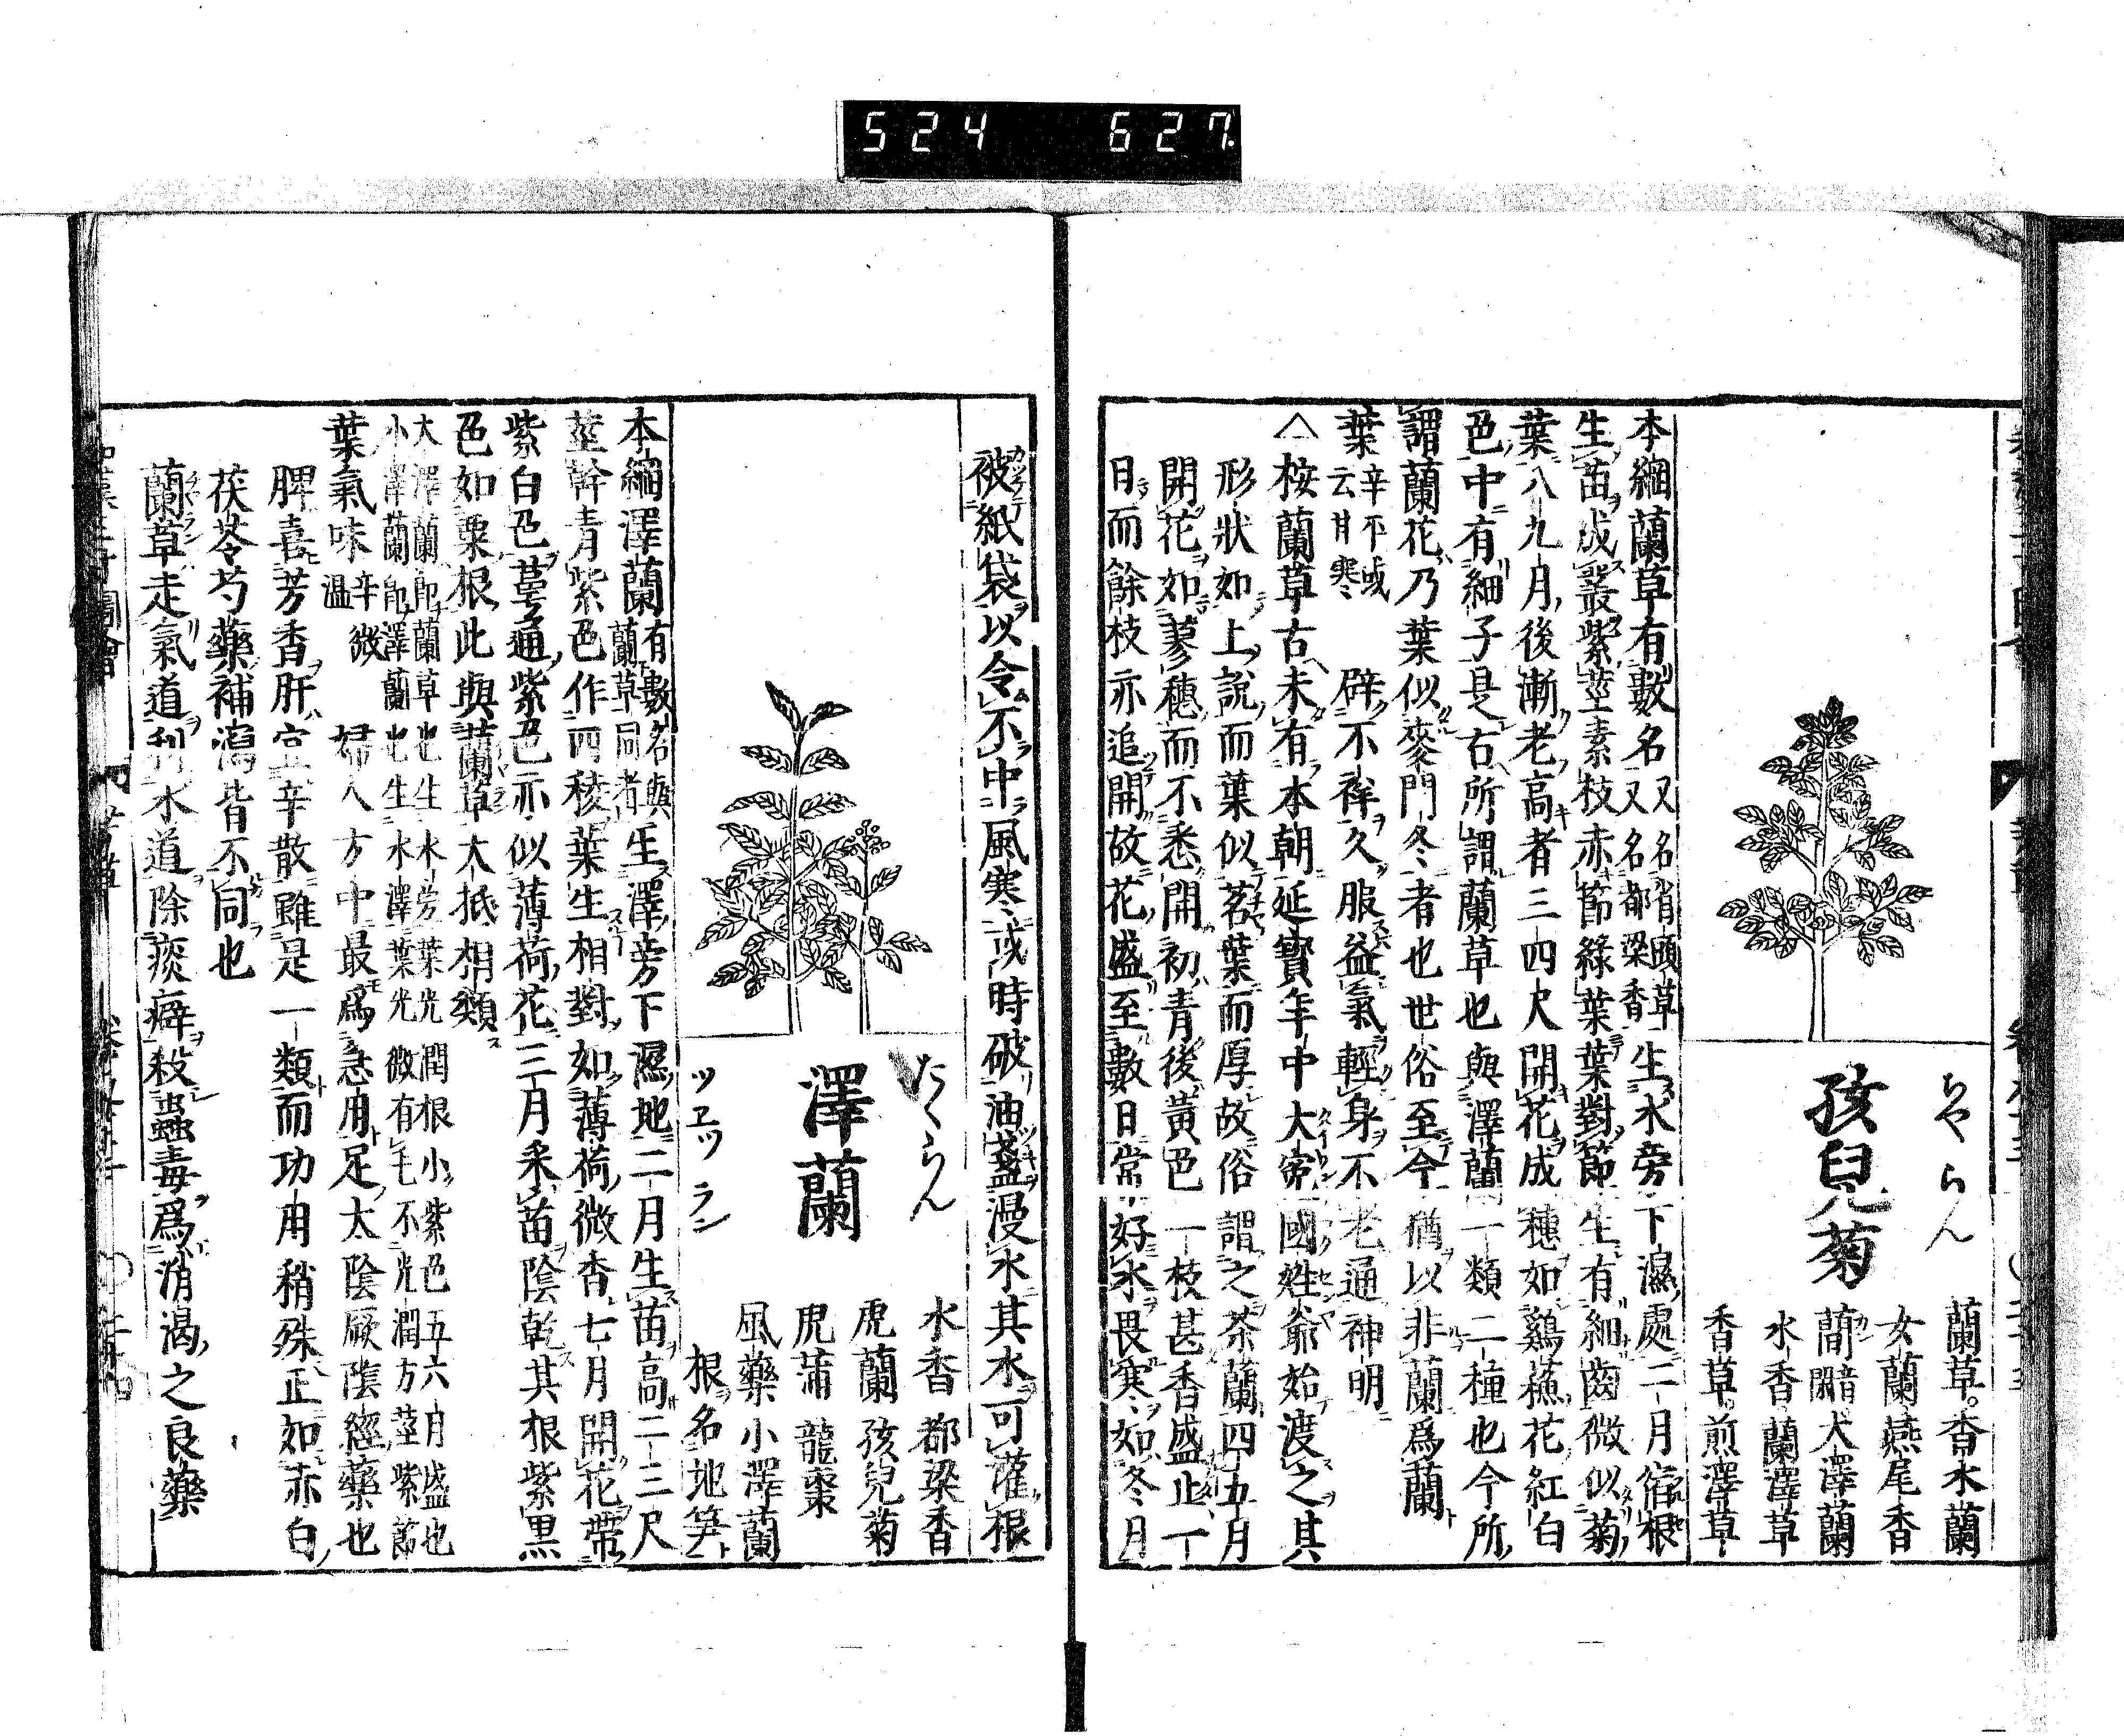 524 627
ちやらん
孩兒菊
蘭草 香水蘭
女蘭 燕尾香
蕳 犬澤蘭
水香蘭 澤草
香草 煎澤草
本綱蘭草有數名 又名省頭草 又名都梁香 生水旁下濕處二月宿根
生苗成叢紫莖素枝赤節綠葉葉對節生有細齒微似菊
葉八九月後漸老高者三四尺開花成穗如鷄蘓花紅白
色中有細子是古所謂蘭草也與澤蘭一類二種也今所
謂蘭花乃葉似麥門冬者也世俗至今猶以非蘭爲蘭
葉 辛平或云甘寒 辟不祥久服益氣輕身不老通神明
△桉蘭草古未有本朝延寶年中大寃國姓爺始渡之其
形狀如上說而葉似茗葉而厚故俗謂之茶蘭四五月
開花如蓼穗而不悉開初青後黃色一枝甚香盛止一
日而餘枝亦追開故花盛至數日常好水畏寒如冬月
被紙袋以令不中風寒或時破油盞漫水其水可灌根
たくらん
澤蘭
ツヱツ ラン
水香 都梁香
虎蘭 孩兒菊
虎蒲 龍棗
風藥 小澤蘭
根名地笋
本綱澤蘭 有數名與蘭草同者 生澤旁下濕地二月生苗高二三尺
莖幹青紫色作四稜葉生相對如薄荷微香七月開花帶
紫白色萼通紫色亦似薄荷花三月采苗陰乾其根紫黑
色如粟根此與蘭草大抵相類
大澤蘭即蘭草也生水旁葉光潤根小紫色五六月盛也
小澤蘭即澤蘭也生水澤葉光微有毛不光潤方莖紫節
葉氣味 辛微溫 婦人方中最爲急用足太陰厥陰經藥也
脾喜芳香肝宜辛散雖是一類而功用稍殊正如赤白
茯苓芍藥補瀉皆不同也
蘭草走氣道利水道除痰癖殺蟲毒爲消渴之良藥